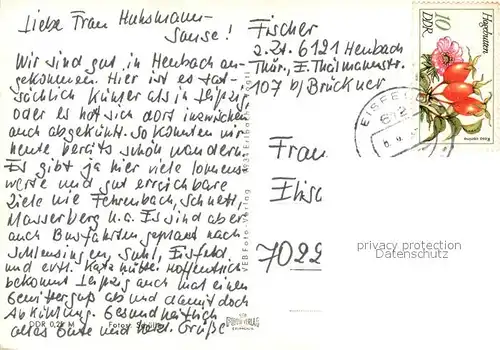 Liebe Frau Huhsmann-
Sause!
Wir sind gut in Heubach an-
gekommen. Hier ist es tat-
sächlich kühler als in Leipzig,
oder es hat sich dort inzwischen
auch abgekühlt. So konnten wir
heute bereits schön wandern.
Es gibt ja hier viele lohnens-
werte und gut erreichbare
Ziele wie Fehrenbach, Schnett,
Masserberg u.a. Es sind aber
auch Busfahrten geplant nach
Schleusingen, Suhl, Eisfeld
und evtl. Katzhütte. Hoffentlich
bekommt Leipzig auch mal einen
Gewitterguß ab und damit doch
Abkühlung. Gesundheitlich
alles Gute und herzl. Grüße
DDR 0,25 M Foto:
VEB Foto-Verlag
Fischer
z.Zt. 6121 Heubach
Thür., E. Thälmannstr.
107 b/ Brückner
Frau
Elisa
7022
10
DDR
Hagebutten
Rosa canina
EISFE
612
datenschutz: privacy protection
Datenschutz